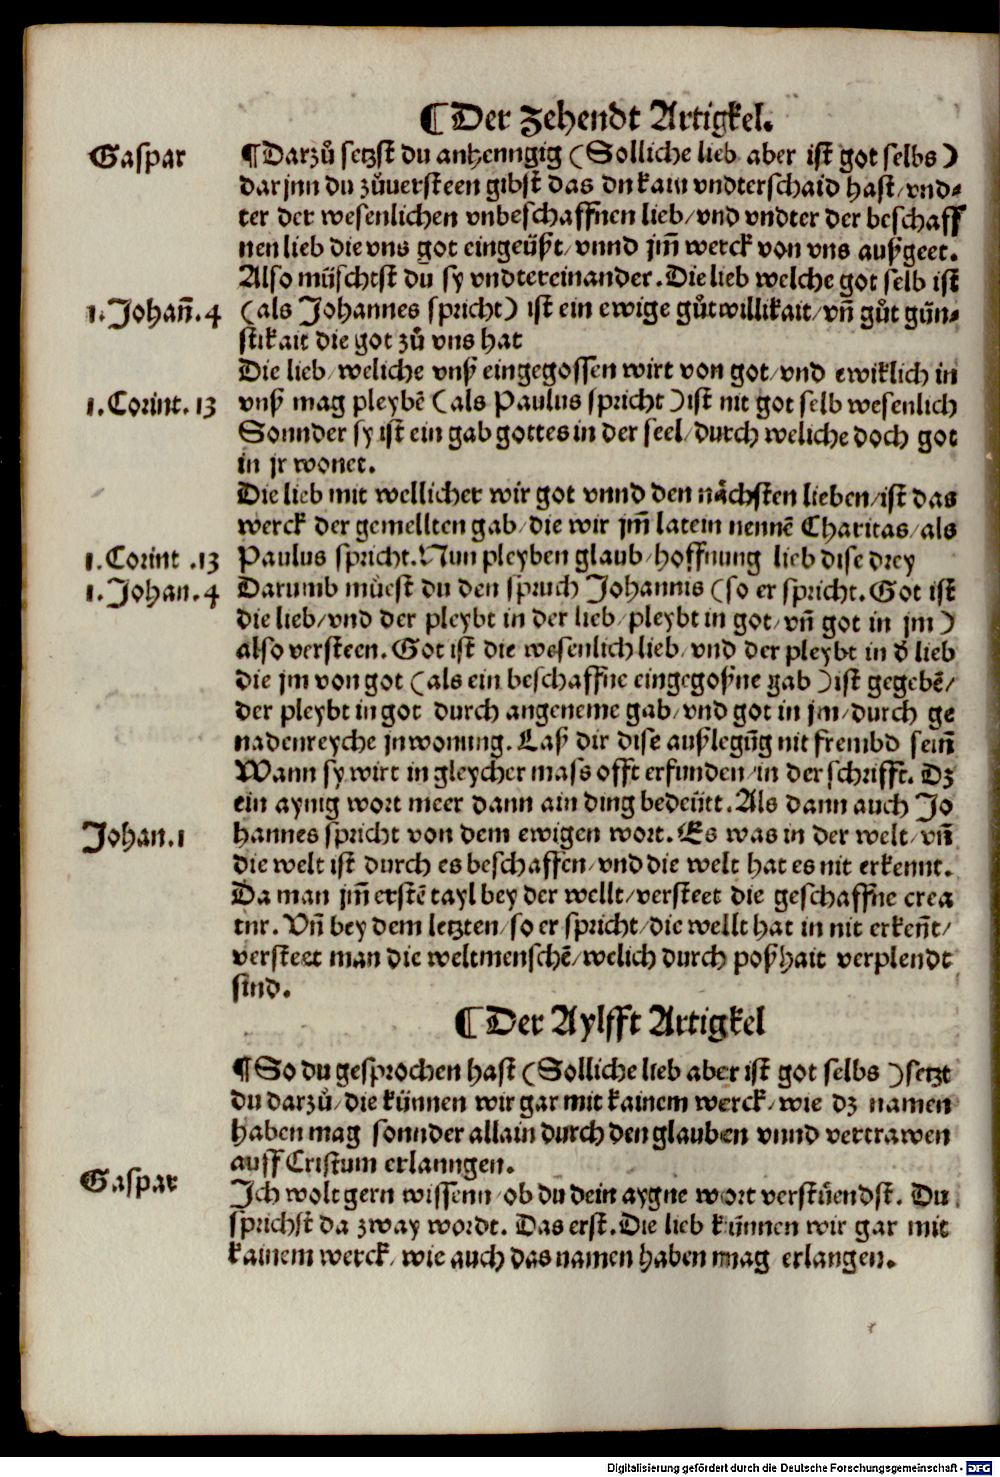 ¶ Der zehendt Artigkel.
Gaspar
¶ Darzuͦ setzst du anhenngig (Solliche lieb aber ist got selbs)
dar jnn du zuͦuersteen gibst das du kain vndterschaid hast/vnd⸗
ter der wesenlichen vnbeschaffnen lieb/vnd vndter der beschaff
nen lieb die vns got eingeüßt/vnnd jm̃ werck von vns außgeet.
Also müschtst du sy vndtereinander. Die lieb welche got selb ist
1. Johañ. 4
(als Johannes spricht) ist ein ewige guͦtwillikait/vñ guͦt gün⸗
stikait die got zuͦ vns hat
Die lieb/weliche vnß eingegossen wirt von got/vnd ewiklich in
1. Corint. 13
vnß mag pleybẽ (als Paulus spricht) ist nit got selb wesenlich
Sonnder sy ist ein gab gottes in der seel/durch weliche doch got
in jr wonet.
Die lieb mit wellicher wir got vnnd den naͤchsten lieben/ist das
werck der gemellten gab/die wir jm̃ latein nennẽ Charitas/als
1. Corint .13
Paulus spricht. Nun pleyben glaub/hoffnung lieb dise drey
1. Johan. 4
Darumb muͤest du den spruch Johannis (so er spricht. Got ist
die lieb/vnd der pleybt in der lieb/pleybt in got/vñ got in jm)
also versteen. Got ist die wesenlich lieb/vnd der pleybt in d̓ lieb
die jm von got (als ein beschaffne eingegoßne gab) ist gegebẽ/
der pleybt in got durch angeneme gab/vnd got in jm/durch ge
nadenreyche jnwonung. Laß dir dise außlegũg nit frembd sein̄
Wann sy wirt in gleycher mass offt erfunden/in der schrifft. Dz
ein aynig wort meer dann ain ding bedeütt. Als dann auch Jo
Johan. 1
hannes spricht von dem ewigen wort. Es was in der welt/vñ
die welt ist durch es beschaffen/vnd die welt hat es nit erkennt.
Da man jm̃ erstẽ tayl bey der wellt/versteet die geschaffne crea
tur. Vñ bey dem letzten/so er spricht/die wellt hat in nit erkeñt/
versteet man die weltmenschẽ/welich durch poßhait verplendt
sind.
¶ Der Aylfft Artigkel
¶ So du gesprochen hast (Solliche lieb aber ist got selbs) setzt
du darzuͦ/die künnen wir gar mit kainem werck/wie dz namen
haben mag sonnder allain durch den glauben vnnd vertrawen
auff Cristum erlanngen.
Gaspar
Ich wolt gern wissenn/ob du dein aygne wort verstüendst. Du
sprichst da zway wordt. Das erst. Die lieb künnen wir gar mit
kainem werck/wie auch das namen haben mag erlangen.
Digitalisierung gefördert durch die Deutsche Forschungsgemeinschaft - DFG